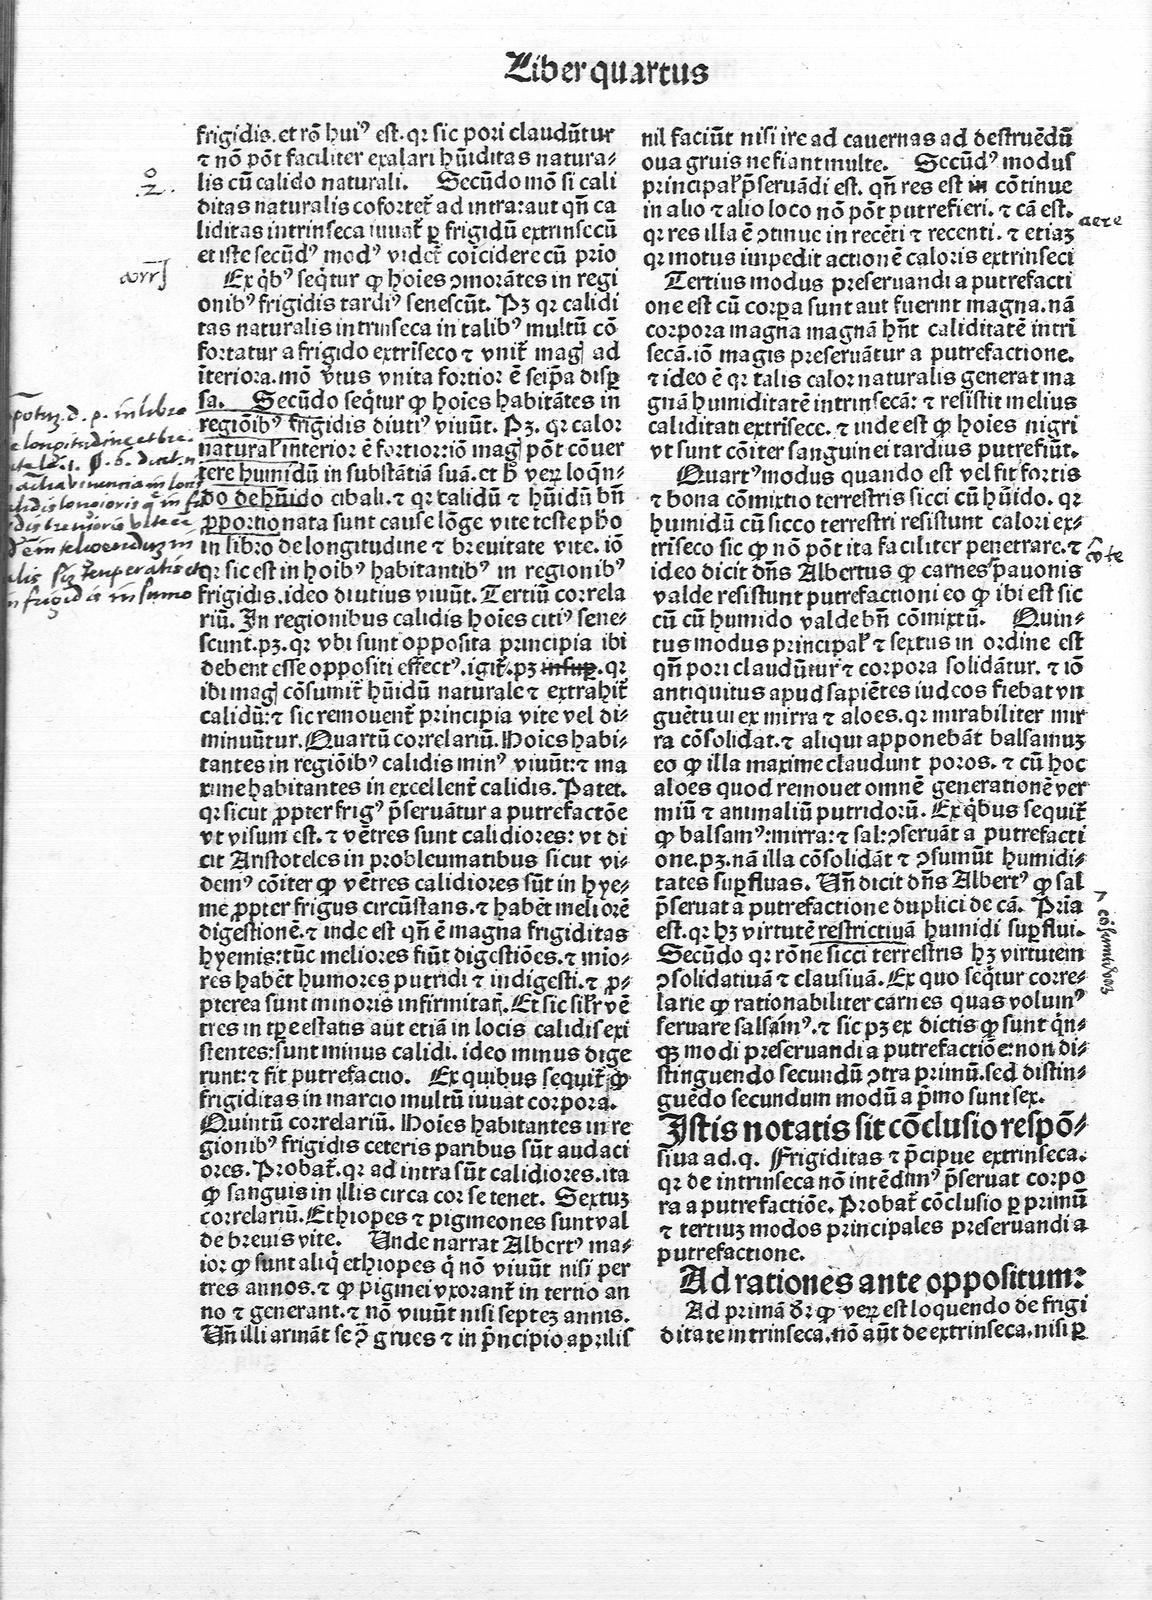 Liber quartus
frigidis. et rō hui⁹ est. qꝛ sic pori claudūtur
⁊ nō pōt faciliter exalari hūiditas natura⸗
lis cū calido naturali. Secūdo mō si cali
ditas naturalis cofortet̄ ad intra: aut qn̄ ca
liditas intrinseca iuuat̄ ꝑ frigidū extrinsecū
et iste secūd⁹ mod⁹ videt̄ coīcidere cū prīo
Ex q̇b⁹ seq̇tur ꝙ hoīes ↄmorātes in regi
onib⁹ frigidis tardi⁹ senescūt. Pꝫ qꝛ calidi
tas naturalis intrinseca in talib⁹ multū cō
fortatur a frigido extrīseco ⁊ vnit̄ magꝭ ad
īteriora. mō v̄tus vnita fortior ē seip̄a disꝑ
sa. Secūdo seq̇tur ꝙ hoīes habitātes in
regiōib⁹ frigidis diuti⁹ viuūt. Pꝫ. qꝛ calor
natural̓ interior ē fortior: iō magꝭ pōt cōuer
tere humidū in substātiā suā. et h̄ veꝝ loqn̄⸗
do de hūido cibali. ⁊ qꝛ calidū ⁊ hūidū bn̄
ꝓportionata sunt cause lōge vite teste ph̄o
in libro de longitudine ⁊ breuitate vite. iō
qꝛ sic est in hoīb⁹ habitantib⁹ in regionib⁹
frigidis. ideo diutius viuūt. Tertiū correla
riū. In regionibus calidis hoīes citi⁹ sene⸗
scunt. pꝫ. qꝛ vbi sunt opposita principia ibi
debent esse oppositi effect⁹. igit̄. pꝫ insup. qꝛ
ibi magꝭ cōsumit̄ hūidū naturale ⁊ extrahit̄
calidū: ⁊ sic remouent̄ principia vite vel di⸗
minuūtur. Quartū correlariū. Hoīes habi⸗
tantes in regiōib⁹ calidis min⁹ viuūt: ⁊ ma
xime habitantes in excellent̄ calidis. Patet.
qꝛ sicut ꝓpter frig⁹ p̄seruātur a putrefactōe
vt visum est. ⁊ vētres sunt calidiores: vt di
cit Aristoteles in probleumatibus sicut vi⸗
dem⁹ cōiter ꝙ vētres calidiores sūt in hye⸗
me ꝓpter frigus circūstans. ⁊ habēt meliorē
digestionē. ⁊ inde est qn̄ ē magna frigiditas
hyemis: tūc meliores fiūt digestiōes. ⁊ mio⸗
res habēt humores putridi ⁊ indigesti. ⁊ ꝓ⸗
pterea sunt minoris infirmitat̄. Et sic silr̄ vē
tres in tꝑe estatis aut etiā in locis calidis exi
stentes: sunt minus calidi. ideo minus dige
runt: ⁊ fit putrefactio. Ex quibus sequit̄ ꝙ
frigiditas in marcio multū iuuat corpora.
Quintū correlariū. Hoīes habitantes in re
gionib⁹ frigidis ceteris paribus sūt audaci
ores. Probat̄. qꝛ ad intra sūt calidiores. ita
ꝙ sanguis in illis circa cor se tenet. Sextuꝫ
correlariū. Ethiopes ⁊ pigmeones sunt val
de breuis vite. Unde narrat Albert⁹ ma⸗
ior ꝙ sunt aliq̇ ethiopes q̇ nō viuūt nisi per
tres annos. ⁊ ꝙ pigmei vxorant̄ in tertio an
no ⁊ generant. ⁊ nō viuūt nisi septeꝫ annis.
Un̄ illi armāt se ꝯ̄ grues ⁊ in p̄ncipio aprilis
nil faciūt nisi ire ad cauernas ad destruēdū
oua gruis ne fiant multe. Secūd⁹ modus
principal̓ p̄seruādi est. qn̄ res est in cōtinue
in alio ⁊ alio loco nō pōt putrefieri. ⁊ cā est.
qꝛ res illa ē ↄtinue in recēti ⁊ recenti. ⁊ etiaꝫ
qꝛ motus impedit actionē caloris extrinseci
Tertius modus preseruandi a putrefacti
one est cū corpa sunt aut fuerint magna. nā
corpora magna magnā hn̄t caliditatē intrī
secā. iō magis preseruātur a putrefactione.
⁊ ideo ē qꝛ talis calor naturalis generat ma
gnā humiditatē intrinsecā: ⁊ resistit melius
caliditati extrisece. ⁊ inde est ꝙ hoīes nigri
vt sunt cōiter sanguinei tardius putrefiūt.
Quart⁹ modus quando est vel fit fortis
⁊ bona cōmixtio terrestris sicci cū hūido. qꝛ
humidū cū sicco terrestri resistunt calori ex⸗
triseco sic ꝙ nō pōt ita faciliter penetrare. ⁊
ideo dicit dn̄s Albertus ꝙ carnes pauonis
valde resistunt putrefactioni eo ꝙ ibi est sic
cū cū humido valde bn̄ cōmixtū. Quin⸗
tus modus principal̓ ⁊ sextus in ordine est
qn̄ pori claudūtur ⁊ corpora solidātur. ⁊ iō
antiquitus apud sapiētes iudeos fiebat vn
guētū ex mirra ⁊ aloes. qꝛ mirabiliter mir
ra cōsolidat. ⁊ aliqui apponebāt balsamuꝫ
eo ꝙ illa maxime claudunt poros. ⁊ cū hoc
aloes quod remouet omnē generationē ver
miū ⁊ animaliū putridorū. Ex q̇bus sequit̄
ꝙ balsam⁹: mirra: ⁊ sal: ↄseruāt a putrefacti
one. pꝫ. nā illa cōsolidāt ⁊ ↄsumūt humidi⸗
tates suꝑfluas. Un̄ dicit dn̄s Albert⁹ ꝙ sal
p̄seruat a putrefactione duplici de cā. Prīa
est. qꝛ hꝫ virtutē restrictiuā humidi suꝑflui.
Secūdo qꝛ rōne sicci terrestris hꝫ virtutem
ↄsolidatiuā ⁊ clausiuā. Ex quo seq̇tur corre⸗
larie ꝙ rationabiliter carnes quas volum⁹
seruare salsam⁹. ⁊ sic pꝫ ex dictis ꝙ sunt q̇n⸗
qꝫ modi preseruandi a putrefactiōe: non di⸗
stinguendo secundū ↄtra primū. sed distin⸗
guēdo secundum modū a p̄mo sunt sex.
Istis notatis sit cōclusio respō⸗
siua ad. q. Frigiditas ⁊ p̄cipue extrinseca.
qꝛ de intrinseca nō intēdim⁹ p̄seruat corpo
ra a putrefactiōe. Probat̄ cōclusio ꝑ primū
⁊ tertiuꝫ modos principales preseruandi a
putrefactione.
Ad rationes ante oppositum:
Ad primā dr̄ ꝙ veꝝ est loquendo de frigi
ditate intrinseca. nō aūt de extrinseca. nisi ꝑ
2.
corrꝭ
in libro
longitudine et bre.
in frigidis in sumo
aere